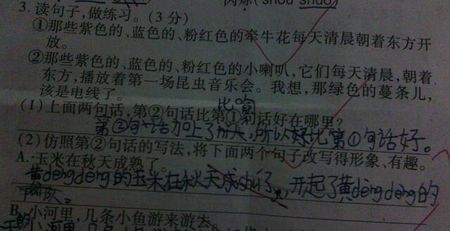 闪烁(shǒu shuò)
3. 读句子,做练习。(3 分)
①那些紫色的、蓝色的、粉红色的牵牛花每天清晨朝着东方开
放。
②那些紫色的、蓝色的、粉红色的小喇叭,它们每天清晨,朝着
东方,播放着第一场昆虫音乐会。我想,那绿色的蔓条儿,
该是电线了。
(1)上面两句话,第②句话比第①句话好在哪里?
比喻
第②句话加上了 ,所以好比第①句话好。
(2)仿照第②句话的写法,将下面两个句子改写得形象、有趣。
A. 玉米在秋天成熟了。
黄dēngdēng的玉米在秋天成 ,开起了黄dēngdēng的
队。
B. 小河里,几条小鱼游来游去。